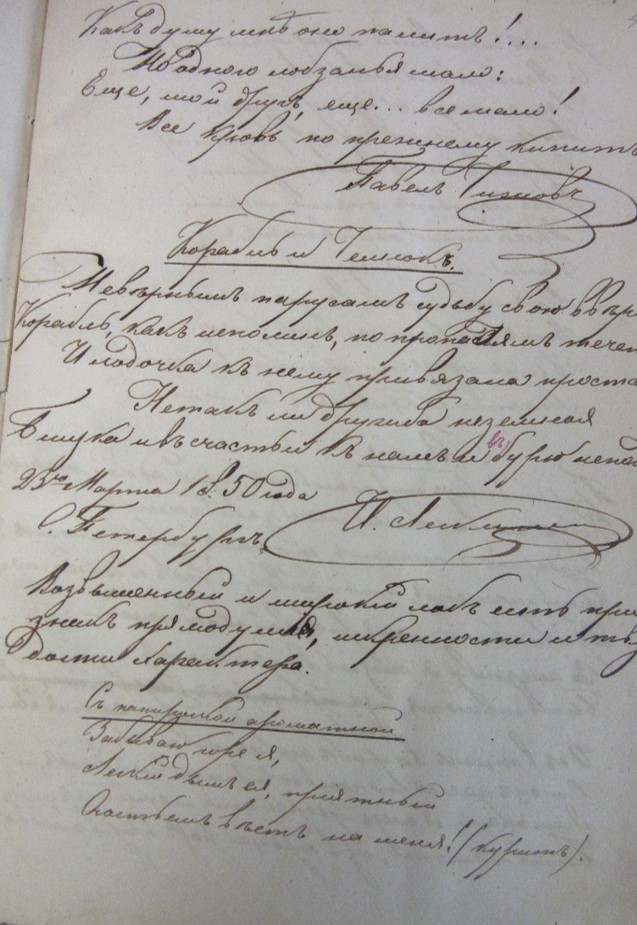 Какъ душу мнѣ оно палитъ!...
Но одного лобзанья мало:
Еще, мой другъ, еще... все мало!
Все кровь по прежнему кипитъ
Павелъ
Корабль и Челнокъ.
Невѣрнымъ парусамъ судьбу свою ввѣр
Корабль, какъ исполинъ, по пропастямъ течет
И лодочка къ нему привязана проста
Не такъ ли дружба неземная
въ
и въ счастьи къ намъ и бурю
23го Марта 1850 года
С. Петербургъ
И.
Возвышенный и широкій лобъ есть при
знакъ прямодушія, искренности и твер
дости характера.
Съ папироской ароматной
Забываю горе я,
Легкій дымъ ея, пріятный
Счастьемъ вѣетъ на меня! (Куршок).